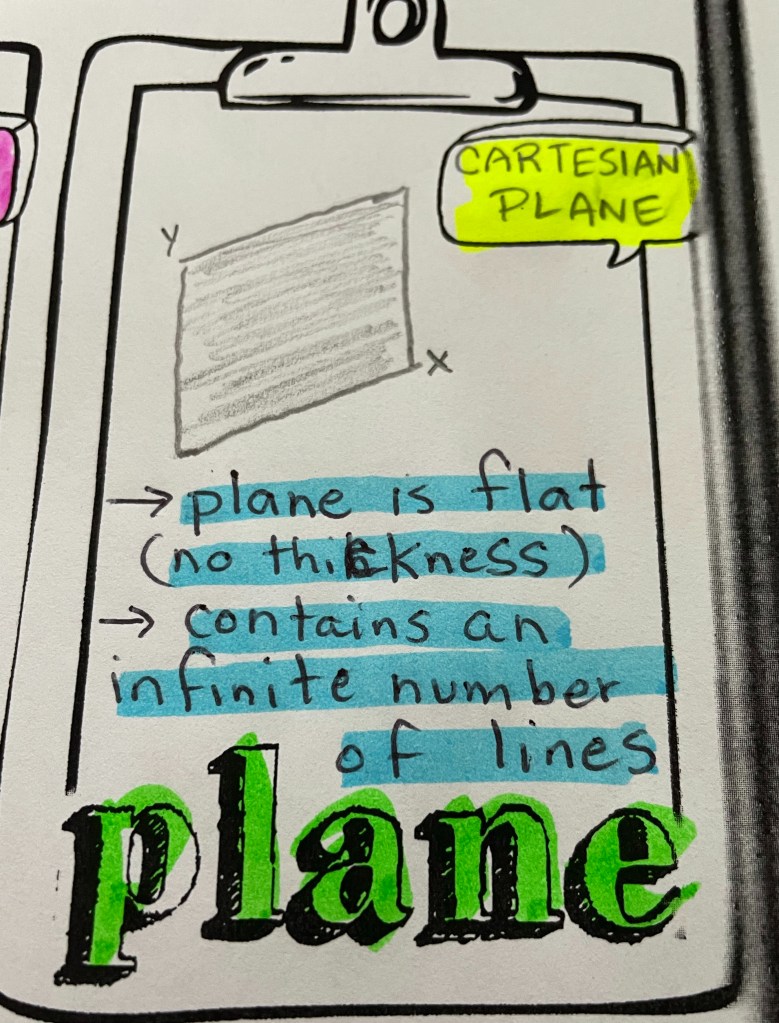 CARTESIAN
PLANE
Y
X
→ plane is flat
(no thickness)
→ contains an
infinite number
of lines
plane